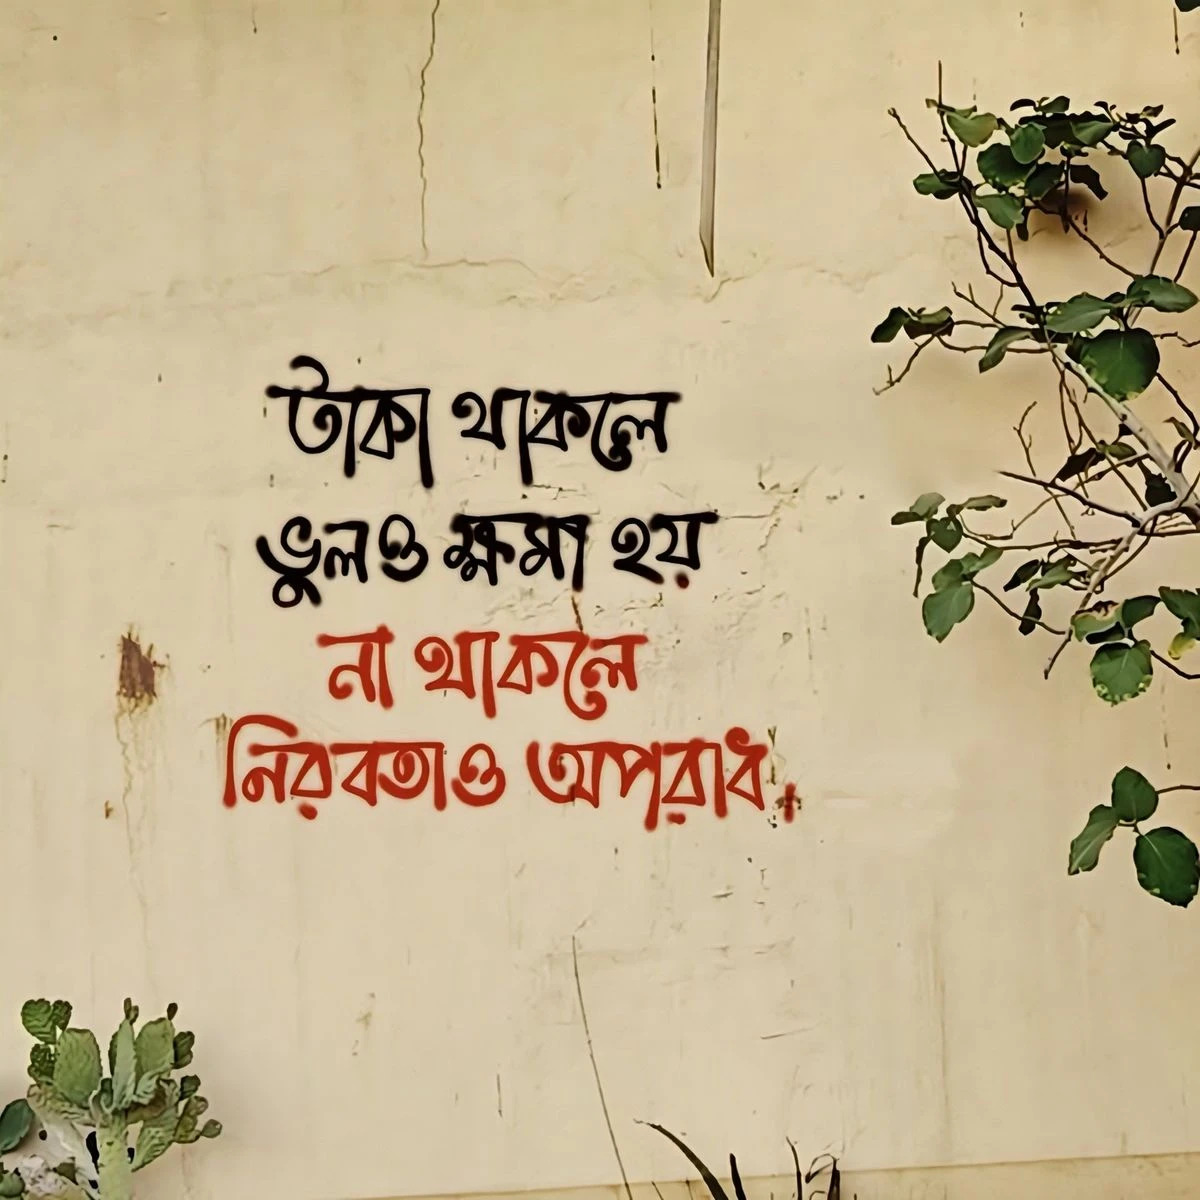 টাকা থাকলে
ভুলও ক্ষমা হয়
না থাকলে
নিরবতাও অপরাধ।